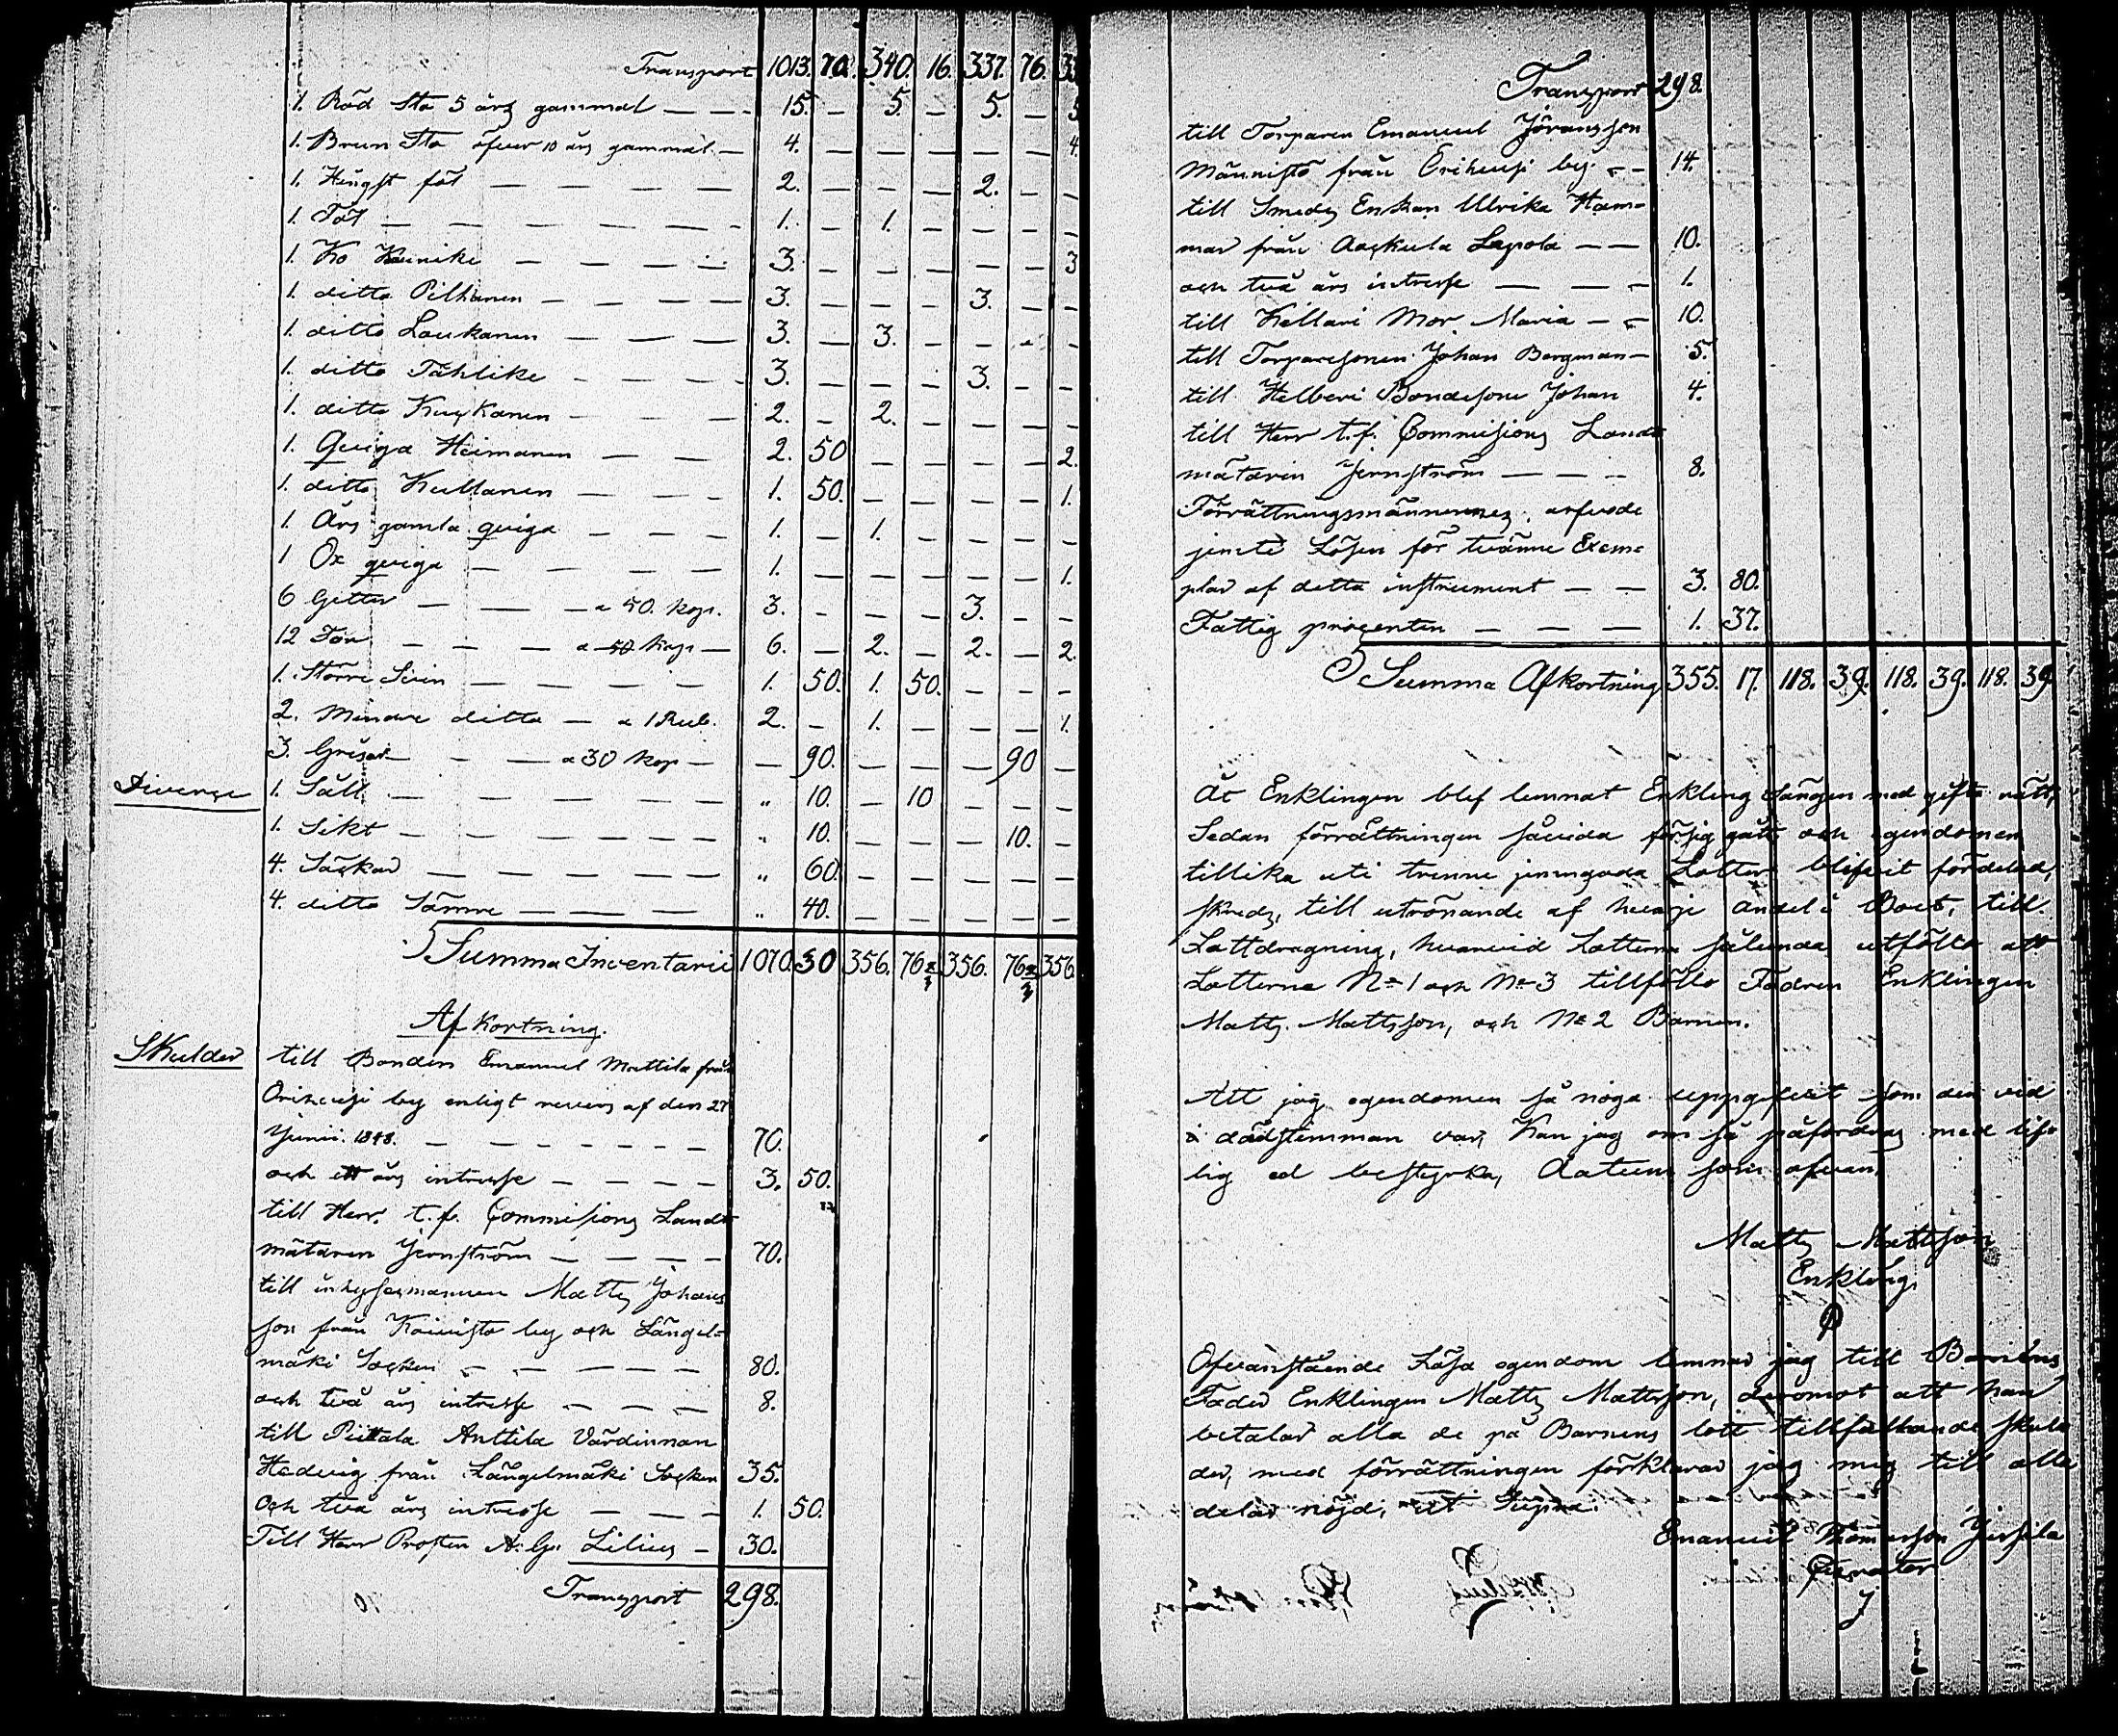 Transport 1013. 70. 340. 16. 337. 76. 33
1. Röd Sto 5 års gammal — — - 15. - 5. - 5. - 5
1. Brun Sto öfver 10 års gammal - 4. - - - - - 4.
1. Hingst föl — — — — 2. - - - 2. - -
1. Föl — — — — — - 1. - 1. - - - -
1. Ko Kaunike — — — — 3. - - - - - 3
1. ditto Pilkanen — — — — 3. - - - 3. - -
1. ditto Laukanen — — — 3. - 3. - - - -
1. ditto Tähtike — — — - 3. - - - 3. - -
1. ditto Kuskanen — — — 2. - 2. - - - -
1. Qviga Heimanen — — — 2. 50 - - - - 2.
1. ditto Kullanen — — - 1. 50. - - - - 1.
1. Års gamla qviga — — - 1. - 1. - - - -
1 Ox qviga — — — — 1. - - - - - 1.
6 Getter — — — a 50. kop. 3. - - - 3. - -
12 Får — — — a 50 kop — 6. - 2. - 2. - 2.
1. Större Svin — — — — 1. 50. 1. 50. - - -
2. Mindre ditto — a 1 Rub. 2. - 1. - - - 1.
3. Grisar — — a 30 kop — - 90. - - - 90 -
Diverse 1. Såll — — — — — „ 10. - 10 - - -
1. Sikt — — — — — „ 10. - - - 10. -
4. Säckar — — — — — „ 60. - - - - -
4. ditto Sämre — — — „ 40. - - - - -
Summa Inventarii 1070. 30 356. 76 2/3 356. 76 2/3 356.
Afkortning.
Skulder till Bonden Emanuel Mattila från
Orihvesi by enligt revers af den 27
Junii. 1848. — — — — — — 70.
och ett års intresse — — — — 3. 50.
till Herr. t.f. Commissions Landt
mätaren Jernström — — — — 70.
till inhysesmannen Matts Johans
son från Koivisto by och Längel=
mäki Socken — — — — — 80.
och två års intresse — — — 8.
till Piittala Anttila Värdinnan
Hedvig från Längelmäki Socken 35.
Och två års intresse — — - 1. 50.
Till Herr Prosten A. G. Lilius — 30.
Transport 298.
Transport 298.
till Torparen Emanuel Jöransson
Männistö från Orihvesi by. - - 14.
till Smeds Enkan Ulrika Ham=
mar från Aaskula Lapola — — 10.
och två års intresse — — - 1.
till Kellari Mor Maria — - 10.
till Torparesonen Johan Bergman — 5.
till Helberi Bondesone Johan 4.
till Herr t.f. Commissions Landt
mätaren Jernström — — - 8.
Förrättningsmännernes arfvode
jemte Lösen för tvänne Exem=
plar af detta instrument — — 3. 80.
Fattig procenten — — — 1. 37.
Summa Afkortning 355. 17. 118. 39. 118. 39. 118. 39
Åt Enklingen blef lemnat Enkling Sängen med gifto rätt,
Sedan förrättningen såvida försig gått och egendomen
tillika uti trenne jemngoda Lotter blifvit fördelad,
skreds, till utrönande af hvarje andel i Boet, till
Lottdragning, hvarvid Lotterne sålunda utföllo att
Lotterne No 1 och No 3 tillföllo Fadren Enklingen
Matts. Mattsson, och No 2 Barnen.
Att jag egendomen så noga uppgifvit som den vid
dödstimman var, Kan jag om så påfordras med lif=
lig ed bestyrka, Datum som ofvan.
Matts Mattsson
Enkling,
Ofvanstående Lösa egendom lemnar jag till Barnens
Fader Enklingen Matts Mattsson, deremot att han
betalar alla de på Barnens lott tillfallande skul=
der, med förrättningen förklarar jag mig till alla
delar nöjd, ut Supra.
Emanuel Thomasson Jussila
Curator